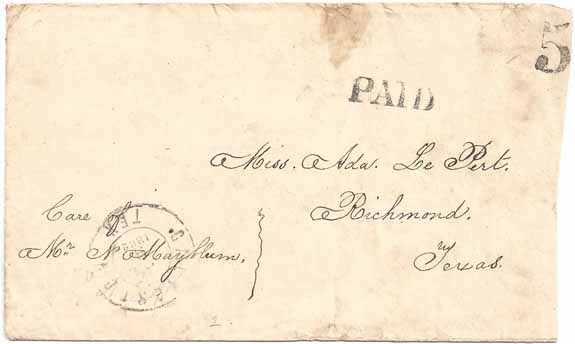 5
PAID
Miss. Ada. Le Pert.
Richmond.
Texas.
Care of
Mr. N. Mayblum.
TEX